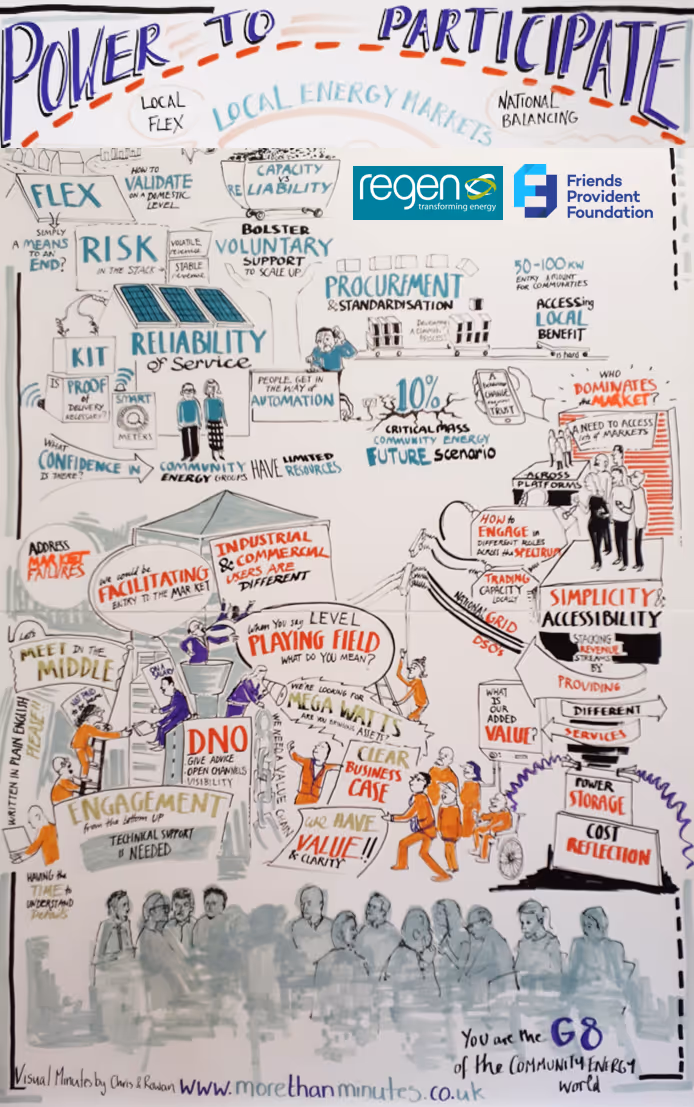 POWER TO PARTICIPATE
LOCAL
FLEX
LOCAL ENERGY MARKETS
NATIONAL
BALANCING
FLEX
HOW TO
VALIDATE
ON A DOMESTIC
LEVEL
CAPACITY
VS
RELIABILITY
regen
transforming energy
Friends
Provident
Foundation
SIMPLY
A MEANS
TO AN
END?
RISK
IN THE STACK
VOLATILE
revenue
STABLE
revenue
BOLSTER
VOLUNTARY
SUPPORT
TO SCALE UP
PROCUREMENT
& STANDARDISATION
50-100 KW
ENTRY AMOUNT
FOR COMMUNITIES
ACCESSING
LOCAL
BENEFIT
is hard
KIT
RELIABILITY
of Service
IS
PROOF
of
DELIVERY
NECESSARY?
SMART
METERS
PEOPLE GET IN
THE WAY OF
AUTOMATION
10%
CRITICAL MASS
COMMUNITY ENERGY
FUTURE Scenario
A
CHANGE
TRUST
WHO
DOMINATES
the MARKET?
A NEED TO ACCESS
lots of MARKETS
WHAT
CONFIDENCE IN
IS THERE?
COMMUNITY
ENERGY GROUPS
HAVE LIMITED
RESOURCES
ACROSS
PLATFORMS
ADDRESS
MARKET
FAILURES
We could be
FACILITATING
ENTRY TO THE MARKET
INDUSTRIAL
& COMMERCIAL
USERS ARE
DIFFERENT
HOW to
ENGAGE in
DIFFERENT ROLES
ACROSS the SPECTRUM
TRADING
CAPACITY
LOCALLY
NATIONAL GRID
DSO's
SIMPLICITY &
ACCESSIBILITY
STACKING
REVENUE
STREAMS
BY
PROVIDING
DIFFERENT
SERVICES
When You say LEVEL
PLAYING FIELD
WHAT DO YOU MEAN?
Let's
MEET IN THE
MIDDLE
ON A
SALARY
WRITTEN IN PLAIN ENGLISH
PLEASE!!
WE'RE LOOKING FOR
MEGA WATTS
WHAT
IS OUR
ADDED
VALUE?
DNO
GIVE ADVICE
OPEN CHANNELS
VISIBILITY
WE NEED A VALUE CHAIN
CLEAR
BUSINESS
CASE
WE HAVE
VALUE!!
& CLARITY
ENGAGEMENT
from the bottom UP
TECHNICAL SUPPORT
IS NEEDED
POWER
STORAGE
COST
REFLECTION
HAVING the
TIME to
UNDERSTAND
Details
You are the G8
of the COMMUNITY ENERGY
world
Visual Minutes by Chris & Rowan www.morethanminutes.co.uk